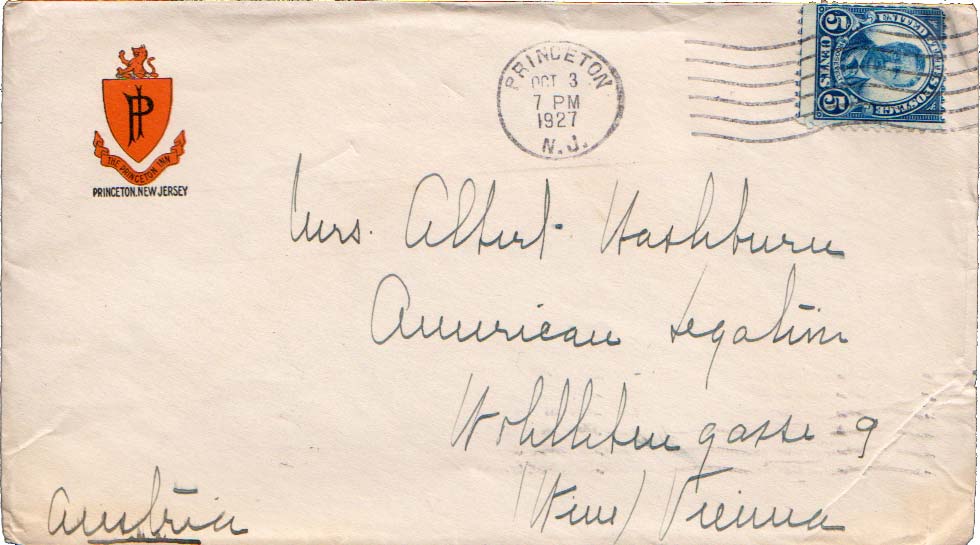 THE PRINCETON INN
PRINCETON, NEW JERSEY
PRINCETON
OCT 3
7 PM
1927
N.J.
UNITED STATES POSTAGE
5 CENTS 5
Mrs. Albert Washburn
American Legation
Wohlleben gasse 9
(Wien) Vienna
Austria